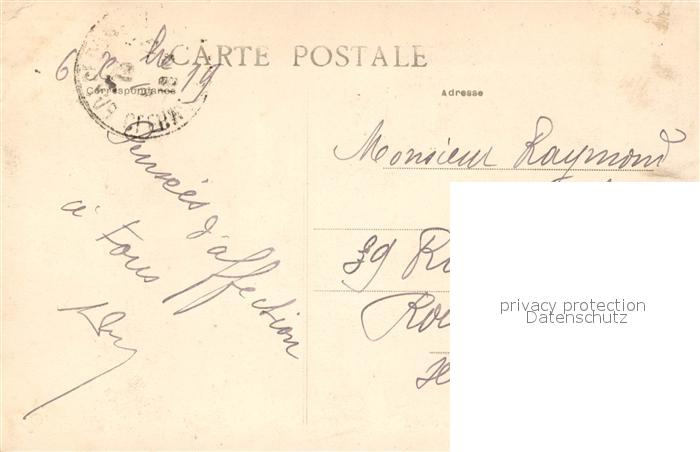 CARTE POSTALE
Correspondance
Adresse
6 Xbre 19
Pensées d'affection
à tous
Monsieur Raymond
39 R
Rou
privacy protection
Datenschutz